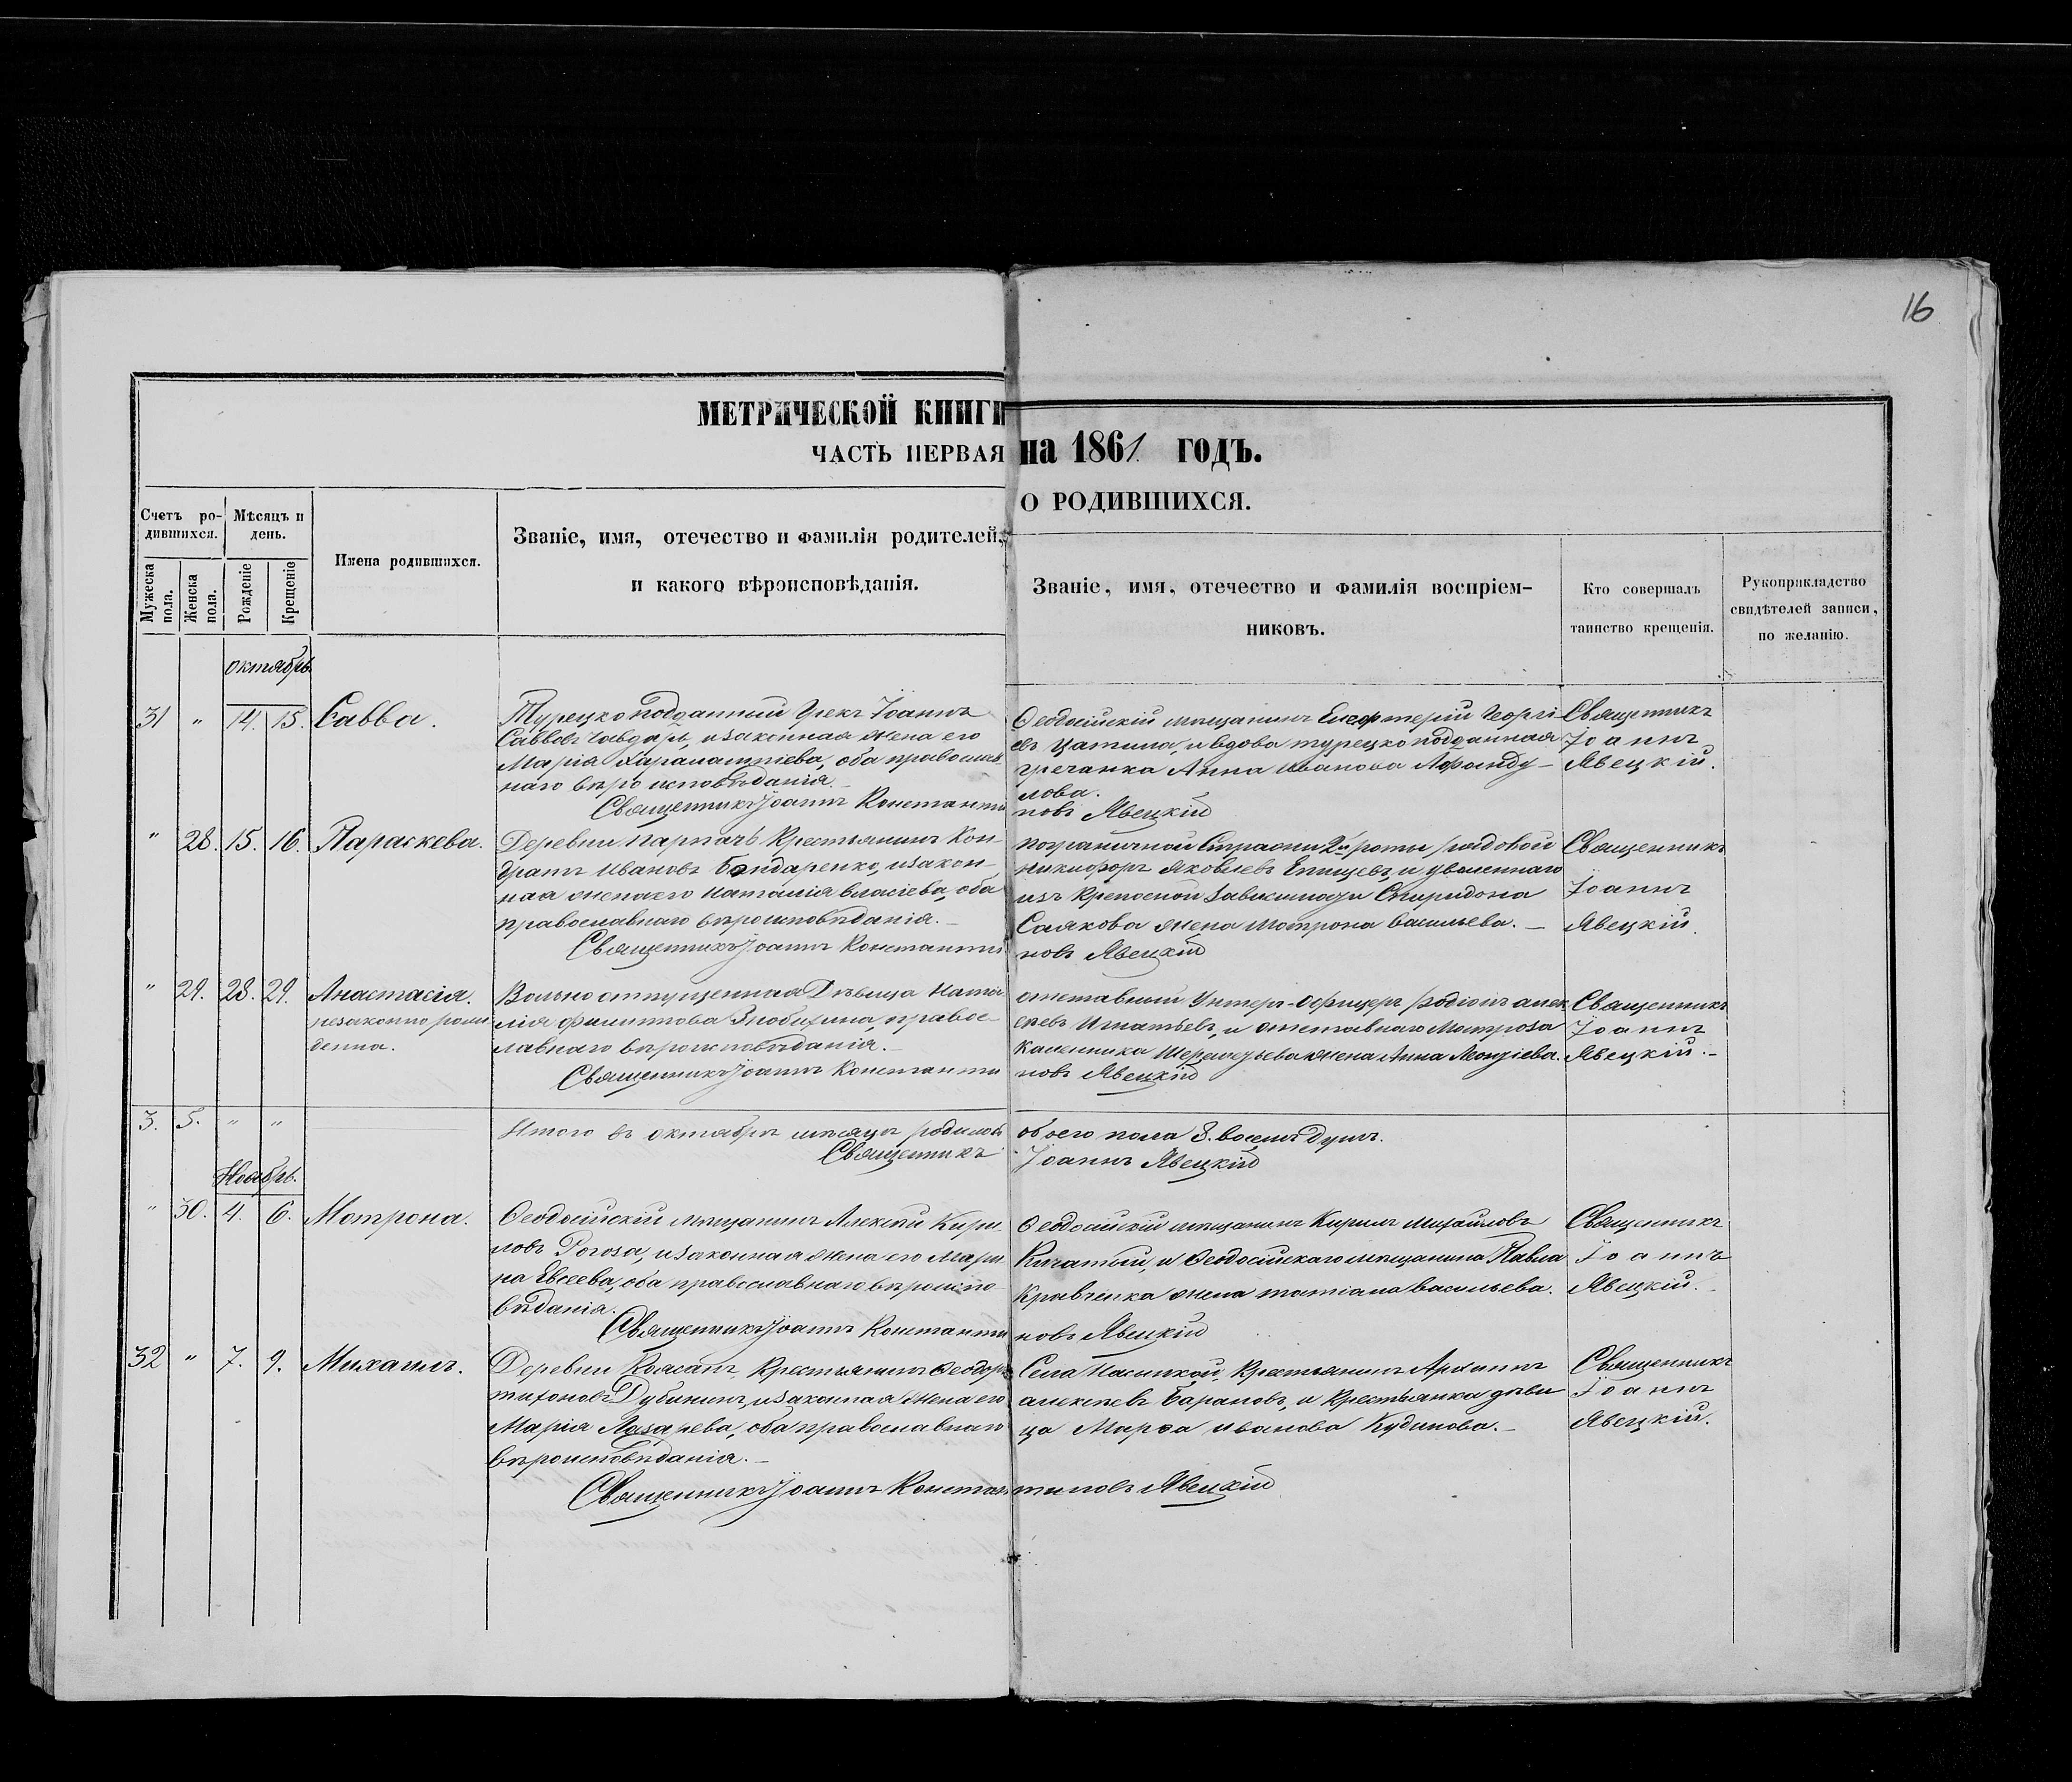 16
МЕТРИЧЕСКОЙ КНИГИ
на 1861 годъ.
ЧАСТЬ ПЕРВАЯ
О РОДИВШИХСЯ.
Счетъ ро-
дившихся.
Мужеска пола.
Женска пола.
Мѣсяцъ и
день.
Рожденіе
Крещеніе
Имена родившихся.
Званіе, имя, отечество и фамилія родителей,
и какого вѣроисповѣданія.
Званіе, имя, отечество и фамилія воспріем-
никовъ.
Кто совершалъ
таинство крещенія.
Рукоприкладство
свидѣтелей записи,
по желанію.
октябрь
31 " 14. 15. Савва.
Турецко подданный Грекъ Іоаннъ
Саввовъ Чавдарь, и законная жена его
Марія, оба православ
наго вѣроисповѣданія.
Священникъ Іоаннъ Константи
Ѳеодосійскій мѣщанинъ Георгі
евъ Цатила, и вдова турецко подданная
гречанка Анна Иванова
лова.
новъ Явецкій
Священникъ
Іоаннъ
Явецкій.
" 28. 15. 16. Параскева.
Деревни Парпачъ Крестьянинъ Кон-
дратъ Ивановъ Бондаренко, и закон
ная жена его Наталія Власіева, оба
православнаго вѣроисповѣданія.
Священникъ Іоаннъ Константи
пограничной Стражи 2й роты рядовой
Никифоръ Яковлевъ Епищевъ, и уволеннаго
изъ Крепосной Спиридона
Саякова жена Мотрона Васильева.
новъ Явецкій
Священникъ
Іоаннъ
Явецкій.
" 29. 28. 29. Анастасія.
незаконно рож
денна.
Вольноотпущенная Дѣвица Ната
лія Филиппова Злобихина, правос
лавнаго вѣроисповѣданія.
Священникъ Іоаннъ Константи
отставный Унтеръ-Офицеръ Родіонъ алек
сѣевъ Игнатьевъ, и отставнаго Матроза
Калинника жена Анна Леонтіева.
новъ Явецкій
Священникъ
Іоаннъ
Явецкій.
3. 5. " "
Итого въ октябрѣ мѣсяцѣ родилось
обоего пола 8. восемъ душъ.
Священникъ
Іоаннъ Явецкій
Ноябрь.
" 30. 4. 6. Мотрона.
Ѳеодосійскій мѣщанинъ Алексѣй Кири
ловъ Рогоза, и законная жена его Мари
на Евсеева, оба православнаго вѣроиспо
вѣданія.
Священникъ Іоаннъ Константи
Ѳеодосійскій мѣщанинъ Кирилъ Михайловъ
Кичатый, и Ѳеодосійскаго мѣщанина Павла
Кравченка жена татіана Васильева.
новъ Явецкій
Священникъ
Іоаннъ
Явецкій.
32 " 7. 9. Михаилъ.
Деревни Коясанъ, Крестьянинъ Ѳеодоръ
тихоновъ Дубининъ, и законная жена его
Марія Лазарева, оба православнаго
вѣроисповѣданія.
Священникъ Іоаннъ Констан
Села Насыпкой, Крестьянинъ Архипъ
алексѣевъ Барановъ, и Крестьянка дѣви
ца Марѳа иванова Кудинова.
тиновъ Явецкій
Священникъ
Іоаннъ
Явецкій.